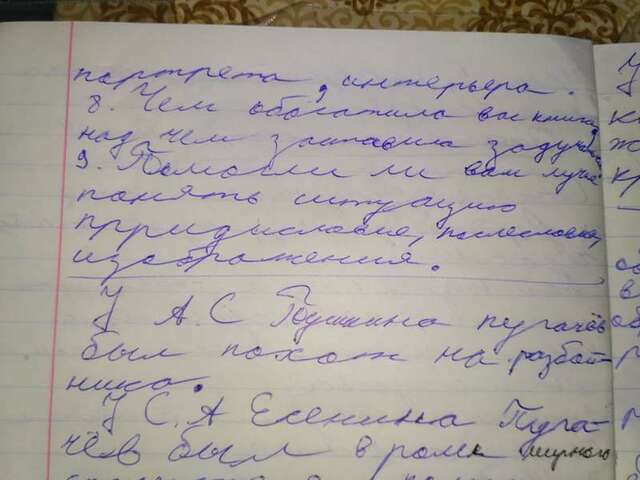 портрета, интерьера.
8. Чем обогатила вас книга,
над чем заставила задума
9. Помогли ли вам лучше
понять ситуацию
прридисловие, послесловие,
изображения.
У А.С Пушкина пугачёв
был похож на разбой-
ника.
У С.А Есенина Пуга-
чёв был в роли мирного